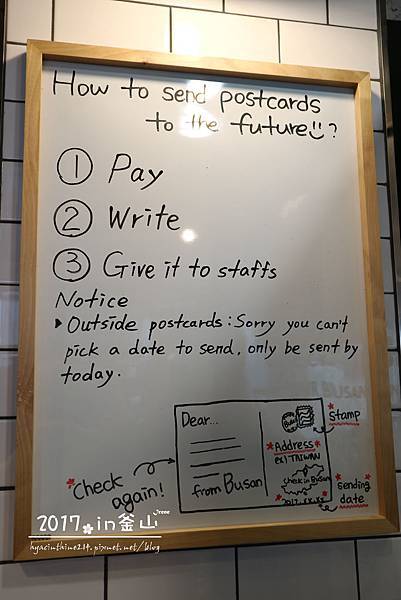 How to send postcards
to the future?
① Pay
② Write
③ Give it to staffs
Notice
▸ Outside postcards: Sorry you can't
pick a date to send, only be sent by
today.
Dear...
from Busan
*Stamp
*Address*
ex) TAIWAN
Check in Busan
2017.xx.xx
*Sending
date
*Check
again!
2017 in 釜山
hyacinthine214.pixnet.net/blog